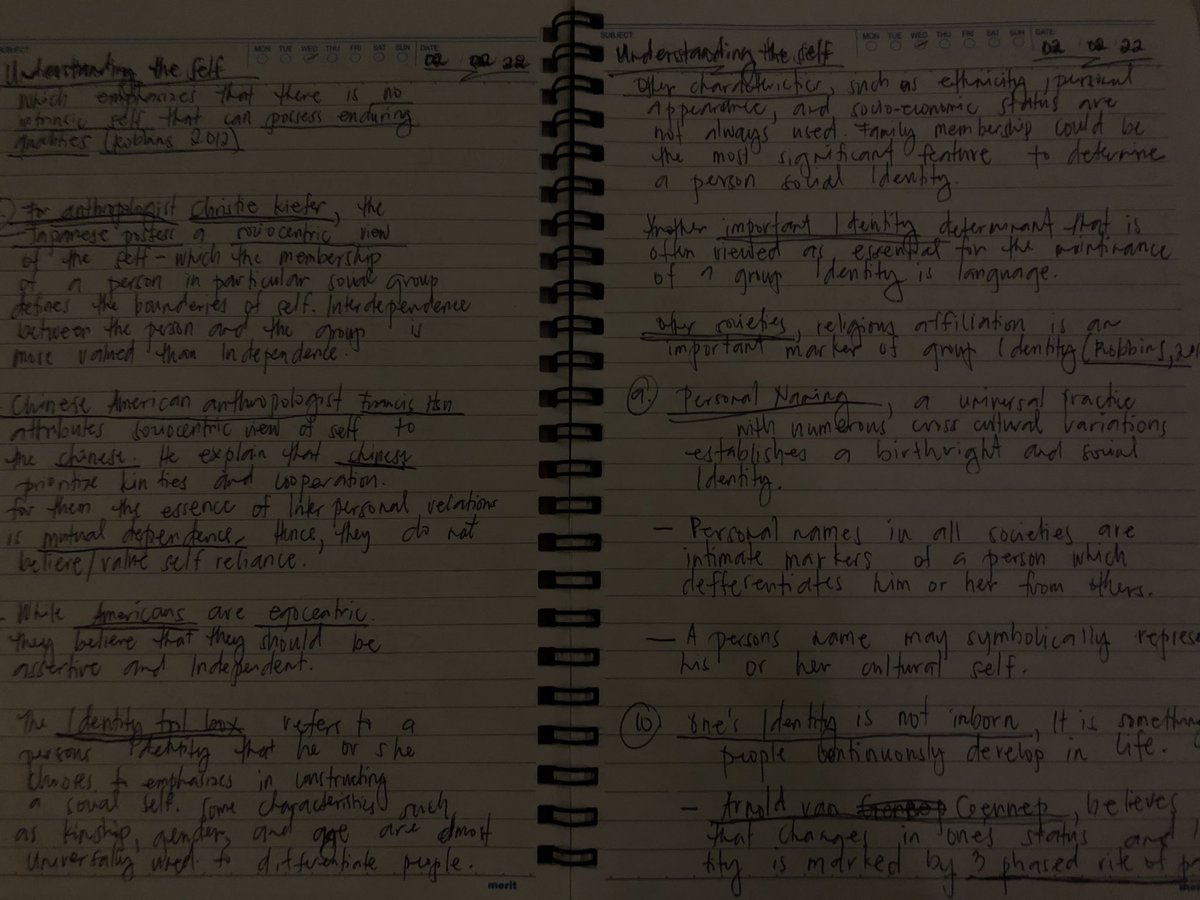 SUBJECT:
MON TUE WED THU FRI SAT SUN
DATE:
02 02 22
Understanding the self
which emphasizes that there is no
intrinsic self that can possess enduring
qualities (Robbins 2012)
For anthropologist Christie Kiefer, the
Japanese possess a sociocentric view
of the self - which the membership
of a person in particular social group
defines the bounderies of self. Interdependence
between the person and the group is
more valued than Independence.
- Chinese American anthropologist Francis Hsu
attributes sociocentric view of self to
the chinese. He explain that chinese
prioritize kin ties and cooperation.
for them the essence of Inter personal relations
is mutual dependence. Hence, they do not
believe/value self reliance.
- While Americans are egocentric.
they believe that they should be
assertive and Independent.
The Identity tool box refers to a
persons Identity that he or she
chooses to emphasizes in constructing
a social self. some characteristics such
as kinship, gender, and age are almost
Universally used to differentiate people.
merit
SUBJECT:
MON TUE WED THU FRI SAT SUN
DATE:
02 02 22
Understanding the self
Other characteristics, such as ethnicity, personal
appearance, and socio-economic status are
not always used. Family membership could be
the most significant feature to determine
a person social Identity.
Another important Identity determinant that is
often viewed as essential for the maintinance
of a group Identity is language.
other societies, religious affiliation is an
important marker of group Identity (Robbins,
a. Personal Naming, a universal practice
with numerous cross cultural variations
establishes a birthright and social
Identity.
- Personal names in all societies are
intimate markers of a person which
defferentiates him or her from others.
- A persons name may symbolically represe
his or her cultural self.
b One's Identity is not inborn, It is something
people continuously develop in life.
- Arnold van Gennep Gennep, believes
that changes in ones status and I
tity is marked by 3 phased rite of pa